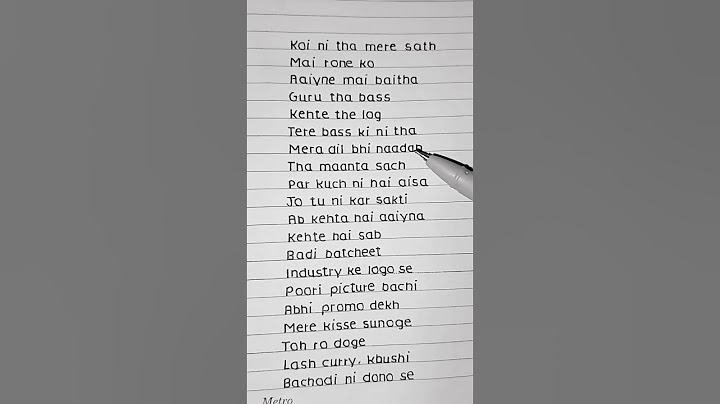 Koi ni tha mere sath
Mai rone ko
Aaiyne mai baitha
Guru tha bass
Kehte the log
Tere bass ki ni tha
Mera dil bhi naadan
Tha maanta sach
Par kuch ni hai aisa
Jo tu ni kar sakti
Ab kehta hai aaiyna
Kehte hai sab
Badi batcheet
Industry ke logo se
Poori picture bachi
Abhi promo dekh
Mere kisse sunoge
Toh ro doge
Lash curry, khushi
Bachadi ni dono se
Metro